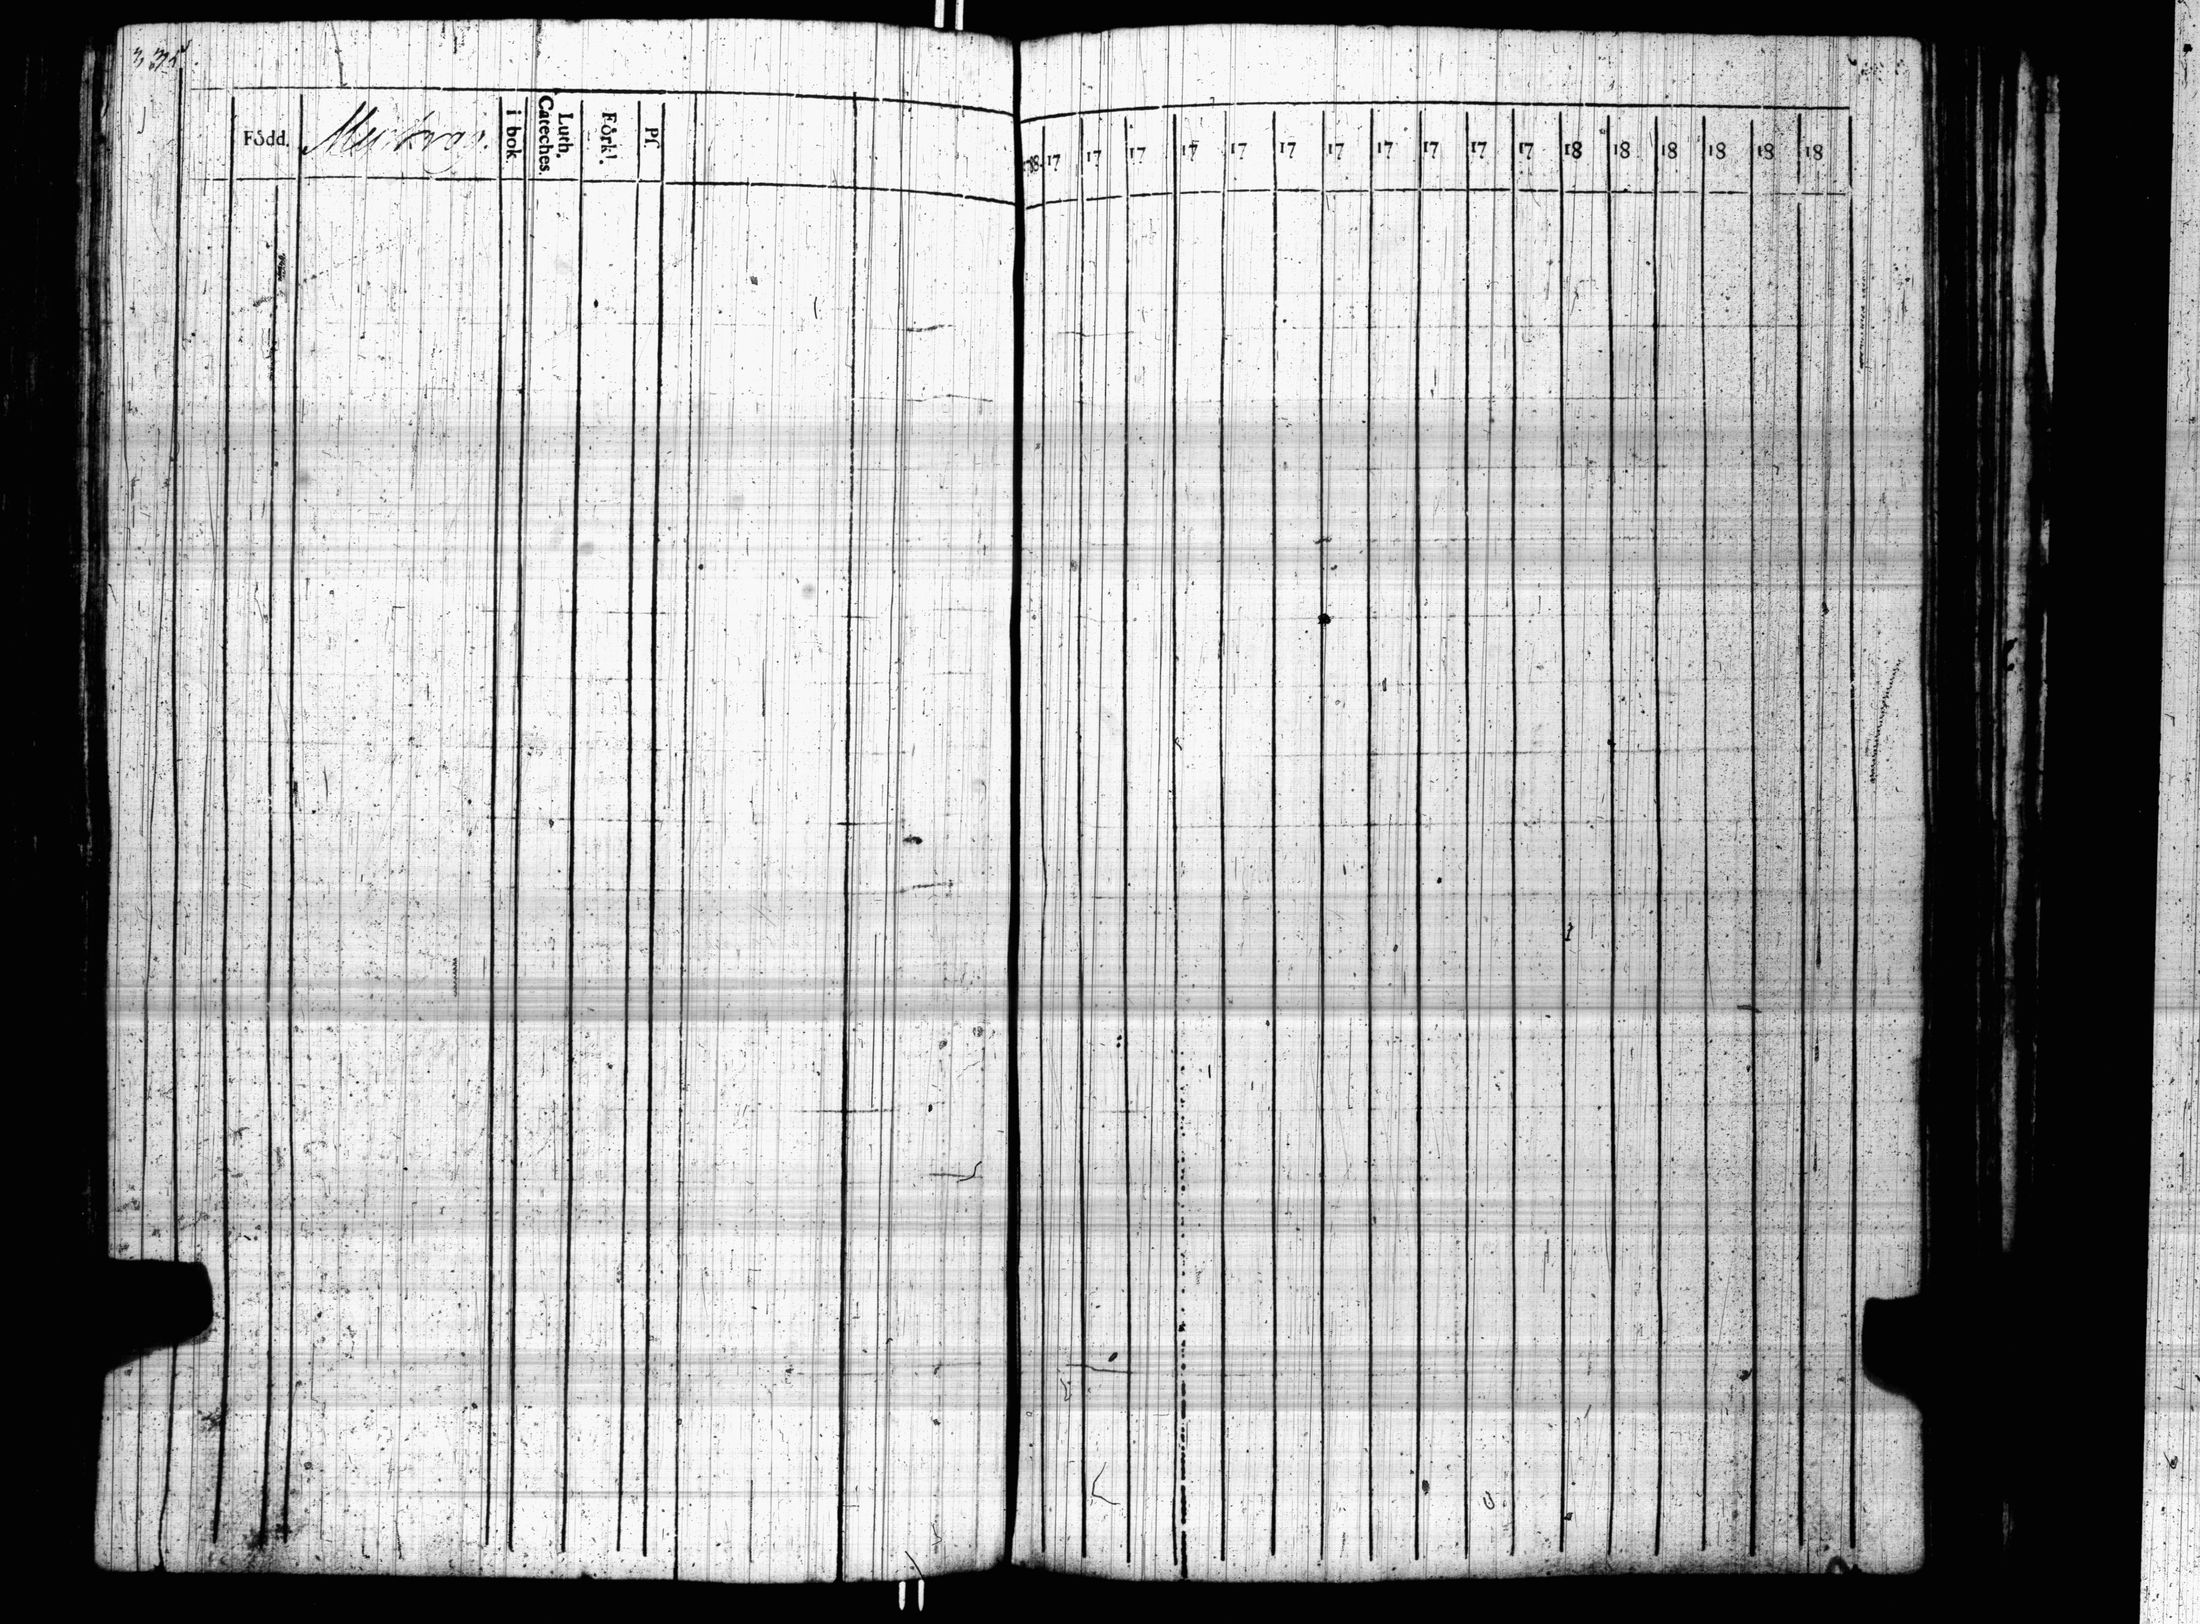 Född.
i bok.
Luth.
Cateches.
Förkl.
Pſ
17 17 17 17 17 17 17 17 17 17 17 18 18 18 18 18 18